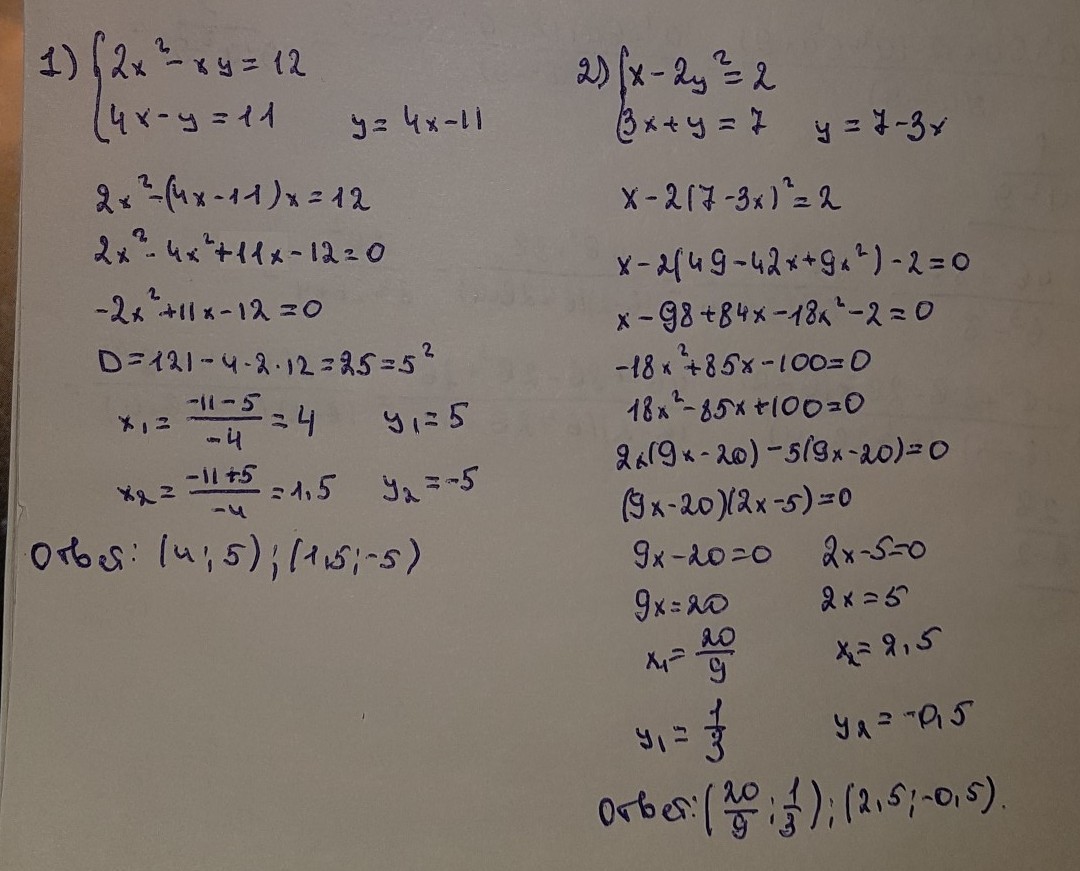 1) {2x² - xy = 12
4x - y = 11 y = 4x - 11
2x² - (4x - 11)x = 12
2x² - 4x² + 11x - 12 = 0
-2x² + 11x - 12 = 0
D = 121 - 4·2·12 = 25 = 5²
x₁ = (-11 - 5)/(-4) = 4 y₁ = 5
x₂ = (-11 + 5)/(-4) = 1,5 y₂ = -5
Ответ: (4; 5); (1,5; -5)
2) {x - 2y² = 2
3x + y = 7 y = 7 - 3x
x - 2(7 - 3x)² = 2
x - 2(49 - 42x + 9x²) - 2 = 0
x - 98 + 84x - 18x² - 2 = 0
-18x² + 85x - 100 = 0
18x² - 85x + 100 = 0
2x(9x - 20) - 5(9x - 20) = 0
(9x - 20)(2x - 5) = 0
9x - 20 = 0 2x - 5 = 0
9x = 20 2x = 5
x₁ = 20/9 x₂ = 2,5
y₁ = 1/3 y₂ = -0,5
Ответ: (20/9; 1/3); (2,5; -0,5).